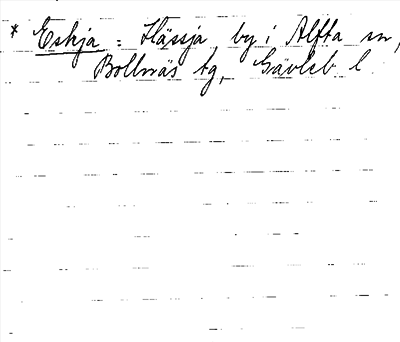 * Eskja = Hässja, by i Alfta sn,
Bollnäs tg, Gävleb l